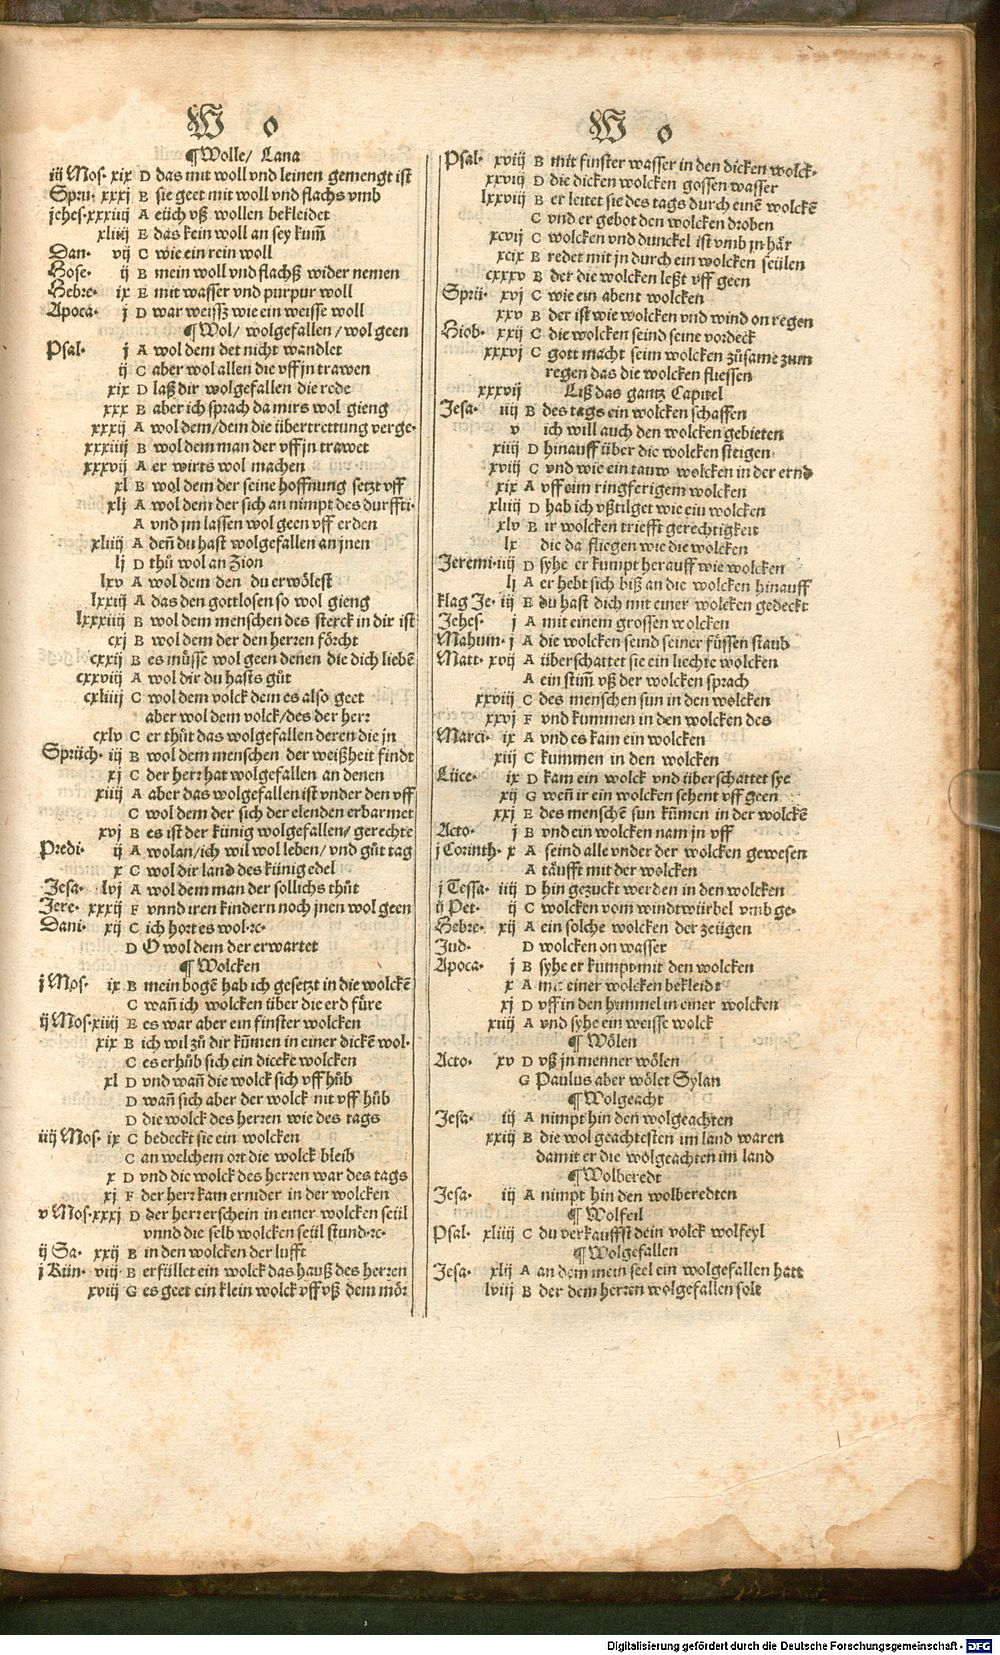 W o
¶Wolle/ Lana
iij Mos· xix D das mit woll vnd leinen gemengt ist
Sprü· xxxj B sie geet mit woll vnd flachs vmb
jehes·xxxiiij A eüch vß wollen bekleidet
xliiij E das kein woll an sey kum̃
Dan· vij C wie ein rein woll
Hose· ij B mein woll vnd flachß wider nemen
Hebre· ix E mit wasser vnd purpur woll
Apoca· j D war weissz wie ein weisse woll
¶Wol/ wolgefallen/ wol geen
Psal· j A wol dem det nicht wandlet
ij C aber wol allen die vff jn trawen
xix D laß dir wolgefallen die rede
xxx B aber ich sprach da mirs wol gieng
xxxij A wol dem/dem die übertrettung verge·
xxxiiij B wol dem man der vff jn trawet
xxxvij A er wirts wol machen
xl B wol dem der seine hoffnung setzt vff
xlj A wol dem der sich an nimpt des durffti·
A vnd jm lassen wol geen vff erden
xliiij A den̄ du hast wolgefallen an jnen
lj D thů wol an Zion
lxv A wol dem den du erwölest
lxxiij A das den gottlosen so wol gieng
lxxxiiij B wol dem menschen des sterck in dir ist
cxj B wol dem der den herren förcht
cxxij B es müsse wol geen denen die dich liebē
cxxviij A wol dir du hasts gůt
cxliiij C wol dem volck dem es also geet
aber wol dem volck/des der herr
cxlv C er thůt das wolgefallen deren die jn
Sprüch· iij B wol dem menschen der weißheit findt
xj C der herr hat wolgefallen an denen
xiiij A aber das wolgefallen ist vnder den vff
C wol dem der sich der elenden erbarmet
xvj B es ist der künig wolgefallen/ gerechte
Predi· ij A wolan/ich wil wol leben/ vnd gůt tag
x C wol dir land des künig edel
Jesa· lvj A wol dem man der sollichs thůt
Jere· xxxij F vnnd iren kindern noch jnen wol geen
Dani· xij C ich hort es wol·⁊c·
D O wol dem der erwartet
¶ Wolcken
j Mos· ix B mein bogē hab ich gesetzt in die wolckē
C wan̄ ich wolcken über die erd füre
ij Mos·xiiij E es war aber ein finster wolcken
xix B ich wil zů dir kūmen in einer dickē wol·
C es erhůb sich ein dicke wolcken
xl D vnd wan̄ die wolck sich vff hůb
D wan̄ sich aber der wolck nit vff hůb
D die wolck des herren wie des tags
iiij Mos· ix C bedeckt sie ein wolcken
C an welchem ort die wolck bleib
x D vnd die wolck des herren war des tags
xj F der herr kam ernider in der wolcken
v Mos·xxxj D der herr erschein in einer wolcken seül
vnnd die selb wolcken seül stund·⁊c·
ij Sa· xxij B in den wolcken der lufft
j Kün· viij B erfüllet ein wolck das hauß des herren
xviij G es geet ein klein wolck vff vß dem mör
W o
Psal· xviij B mit finster wasser in den dicken wolck·
xxviij D die dicken wolcken gossen wasser
lxxviij B er leitet sie des tags durch einē wolckē
C vnd er gebot den wolcken droben
xcvij C wolcken vnd dunckel ist vmb jn här
xcix B redet mit jn durch ein wolcken seülen
cxxxv B der die wolcken leßt vff geen
Sprü· xvj C wie ein abent wolcken
xxv B der ist wie wolcken vnd wind on regen
Hiob· xxij C die wolcken seind seine vordeck
xxxvj C gott macht seim wolcken zůsame zum
regen das die wolcken fliessen
xxxvij Liß das gantz Capitel
Jesa· iiij B des tags ein wolcken schaffen
v ich will auch den wolcken gebieten
xiiij D hinauff über die wolcken steigen
xviij C vnd wie ein tauw wolcken in der ernd
xix A vff eim ringferigem wolcken
xliiij D hab ich vßtilget wie ein wolcken
xlv B ir wolcken triefft gerechtigkeit
lx die da fliegen wie die wolcken
Jeremi·iiij D syhe er kumpt herauff wie wolcken
lj A er hebt sich biß an die wolcken hinauff
klag Je· iij E du hast dich mit einer wolcken gedeckt
Jehes· j A mit einem grossen wolcken
Nahum· j A die wolcken seind seiner füssen staub
Matt· xvij A überschattet sie ein liechte wolcken
A ein stim̄ vß der wolcken sprach
xxviij C des menschen sun in den wolcken
xxvj F vnd kummen in den wolcken des
Marci· ix A vnd es kam ein wolcken
xiij C kummen in den wolcken
Luce· ix D kam ein wolck vnd überschattet sye
xij G wen̄ ir ein wolcken sehent vff geen
xxj E des menschē sun kūmen in der wolckē
Acto· j B vnd ein wolcken nam jn vff
j Corinth· x A seind alle vnder der wolcken gewesen
A täufft mit der wolcken
j Tessa· iiij D hin gezuckt werden in den wolcken
ij Pet· ij C wolcken vom windtwürbel vmb ge·
Hebre· xij A ein solche wolcken der zeügen
Jud· D wolcken on wasser
Apoca· j B syhe er kumpt mit den wolcken
x A mit einer wolcken bekleidt
xj D vff in den hymmel in einer wolcken
xiiij A vnd syhe ein weisse wolck
¶ Wölen
Acto· xv D vß jn menner wölen
G Paulus aber wölet Sylan
¶Wolgeacht
Jesa· iij A nimpt hin den wolgeachten
xxiij B die wol geachtesten im land waren
damit er die wolgeachten im land
¶Wolberedt
Jesa· iij A nimpt hin den wolberedten
¶ Wolfeil
Psal· xliiij C du verkauffst dein volck wolfeyl
¶Wolgefallen
Jesa· xlij A an dem mein seel ein wolgefallen hatt
lviij B der dem herren wolgefallen solt
Digitalisierung gefördert durch die Deutsche Forschungsgemeinschaft - DFG